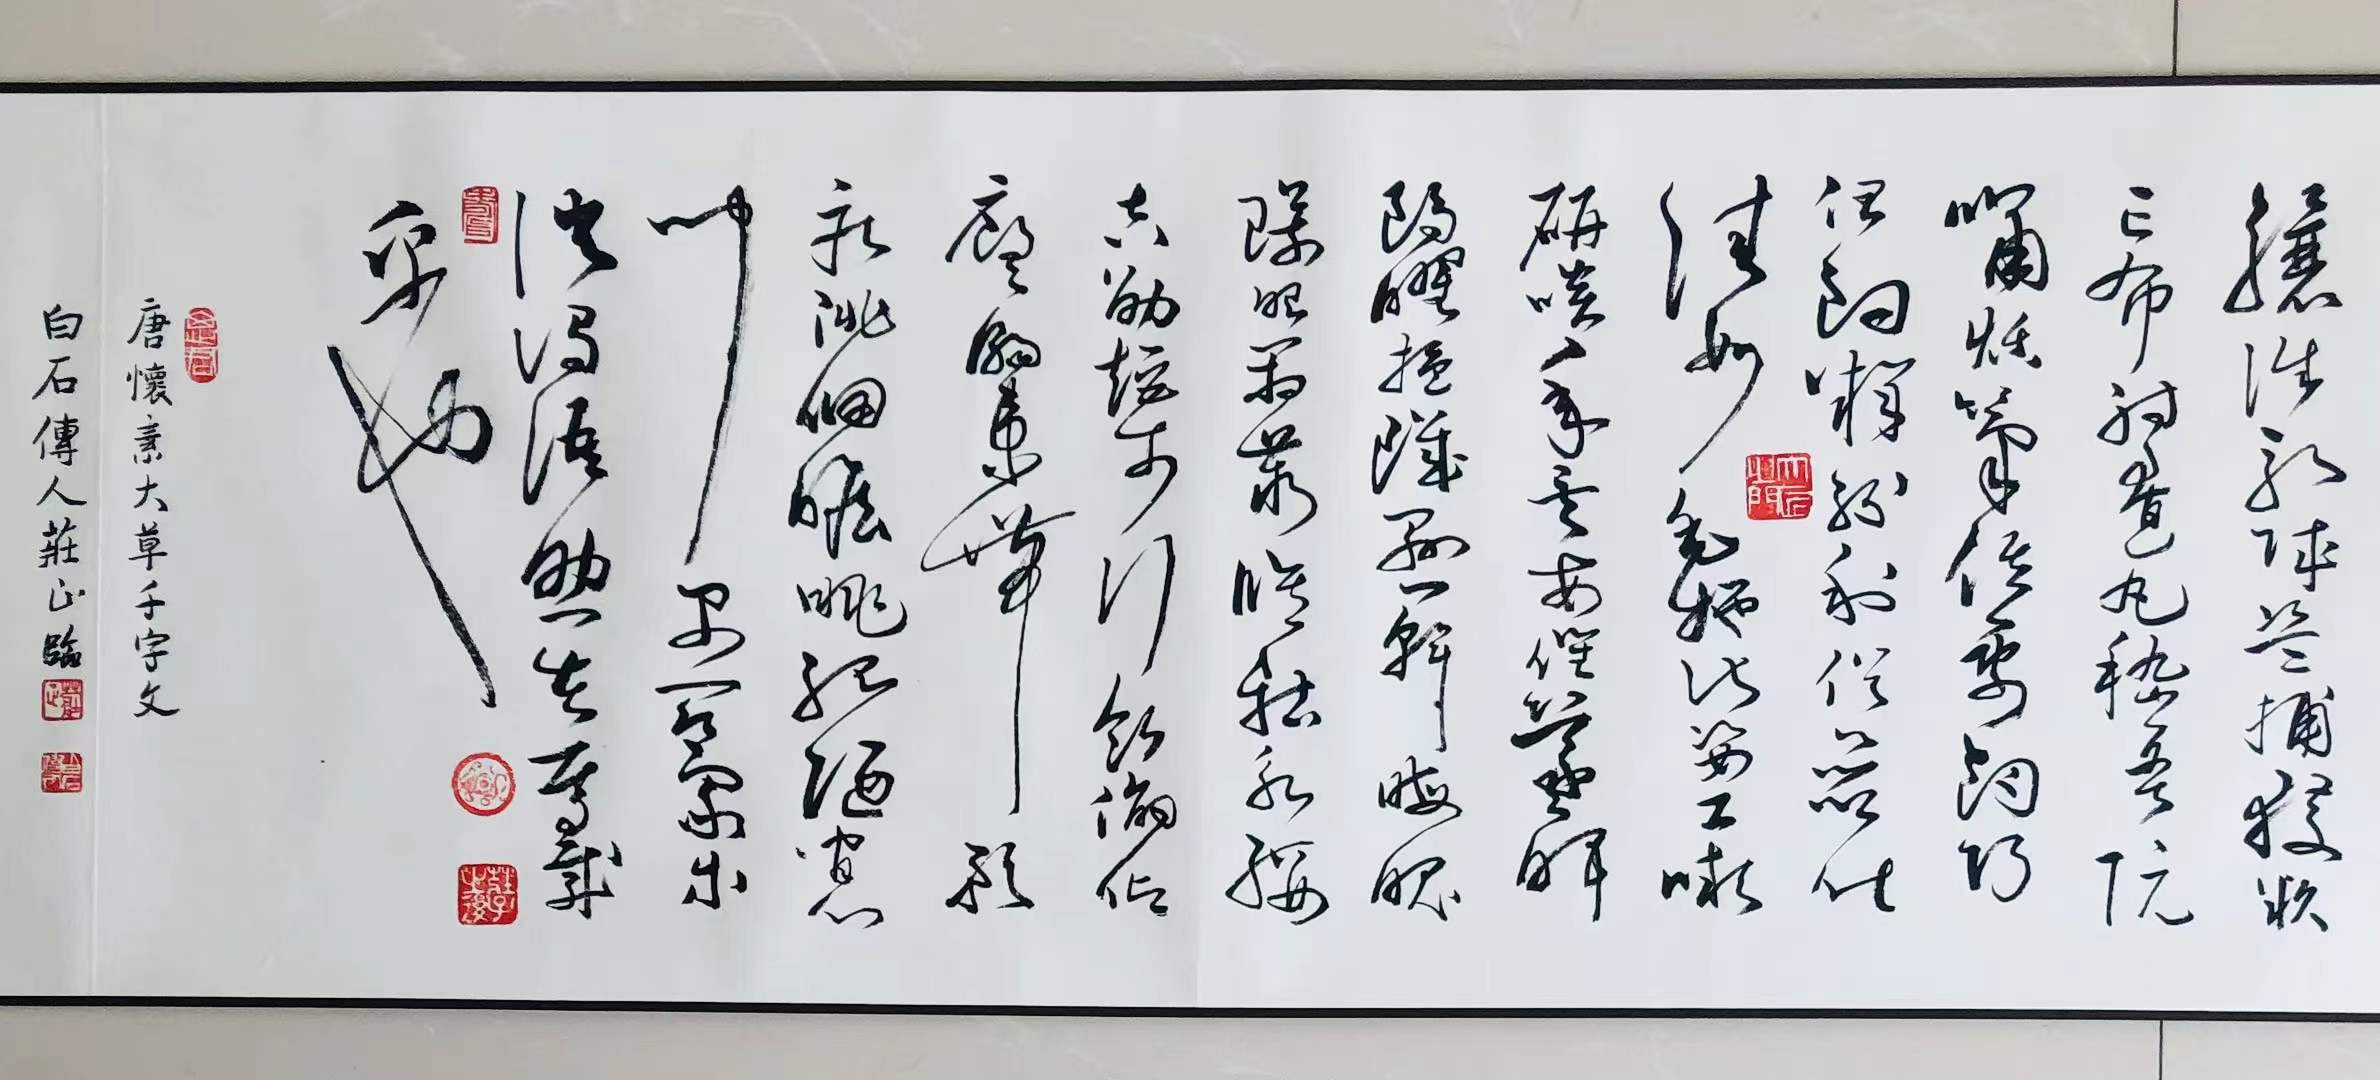 驤誅斬賊盜捕獲叛
亡布射遼丸嵇琴阮
嘯恬筆倫紙鈞巧
任釣釋紛利俗並皆
佳妙毛施淑姿工顰
妍笑年矢每催羲暉
朗曜璇璣懸斡晦魄
環照指薪修祜永綏
吉劭矩步引領俯仰
廊廟束帶矜
莊徘徊瞻眺孤陋寡
聞愚蒙等
誚謂語助者焉哉
乎也
唐懷素大草千字文
白石傳人莊正臨